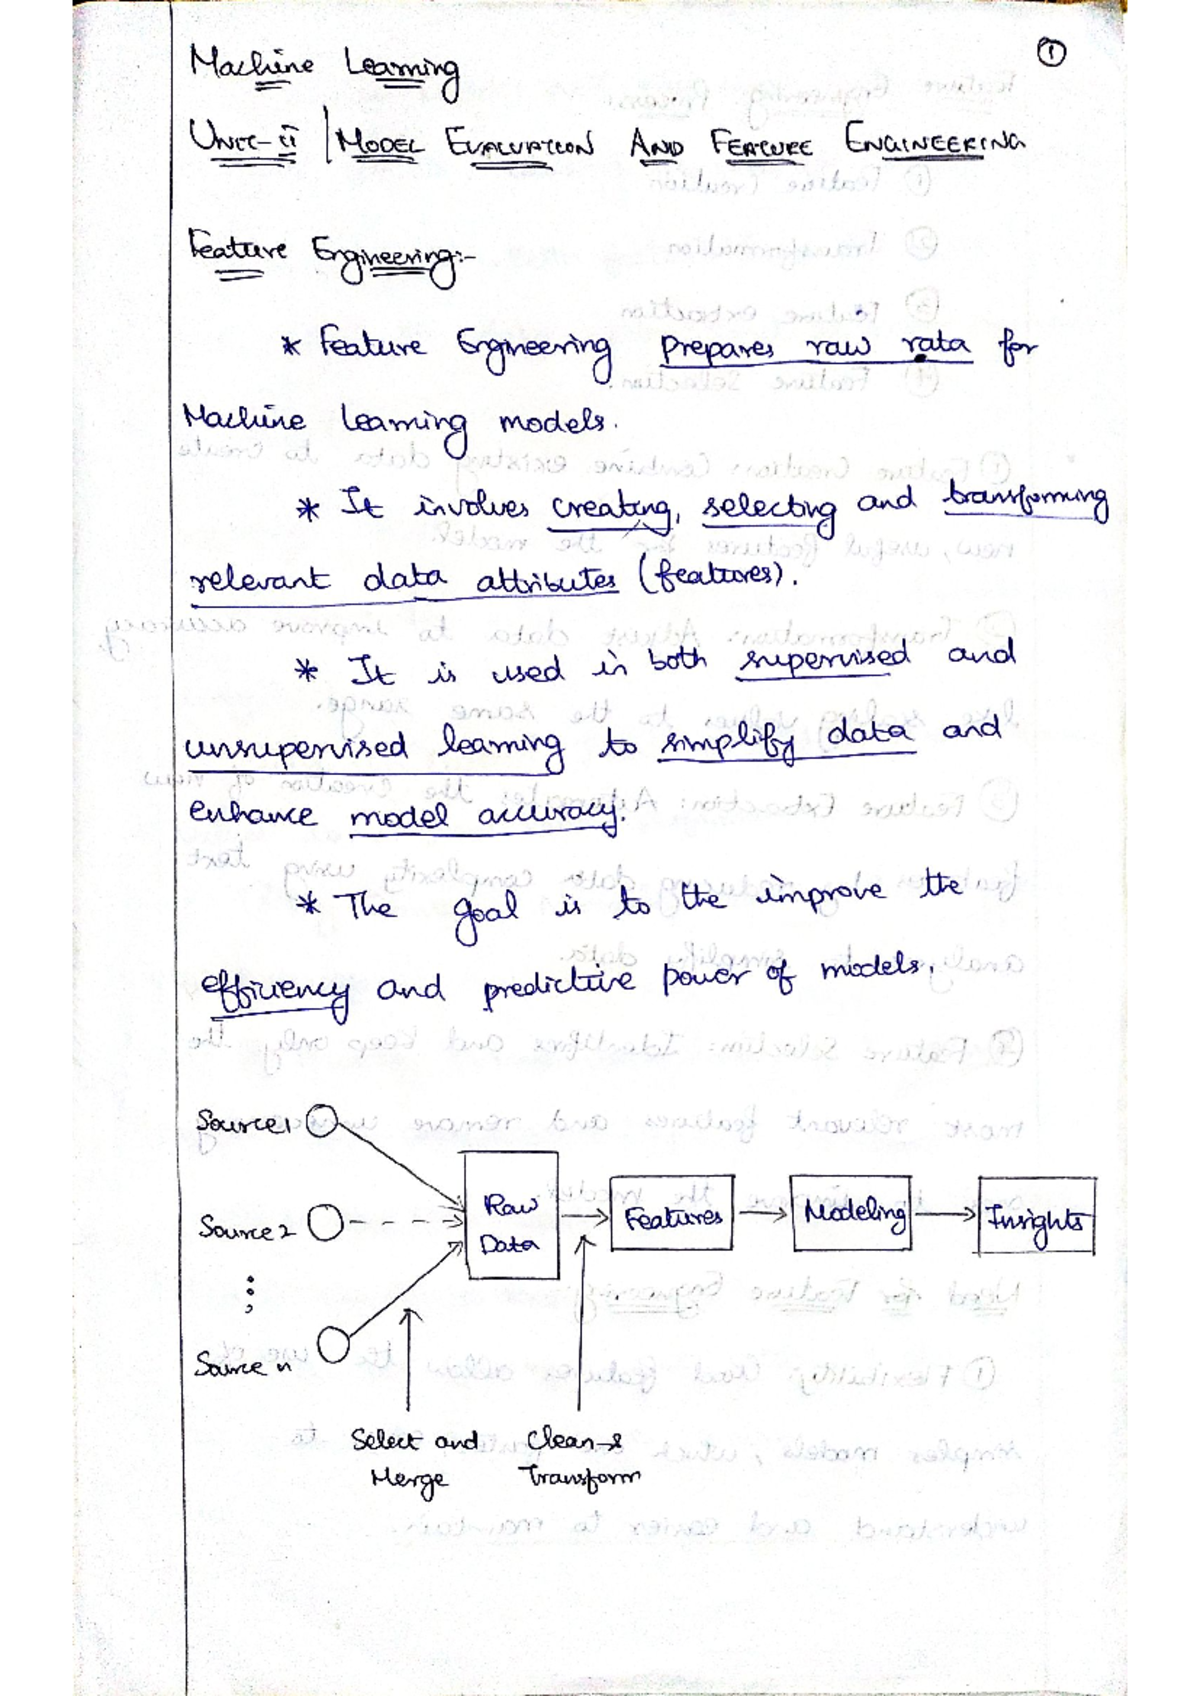 ①
Machine Learning
UNIT-II | MODEL EVALUATION AND FEATURE ENGINEERING
Feature Engineering:-
* Feature Engineering prepares raw rata for
Machine Learning models.
* It involves creating, selecting and transforming
relevant data attributes (features).
* It is used in both supervised and
unsupervised learning to simplify data and
enhance model accuracy.
* The goal is to the improve the
efficiency and predictive power of models.
Source1
Source 2
Source n
Raw
Data
Features
Modeling
Insights
Select and
Merge
Clean &
Transform